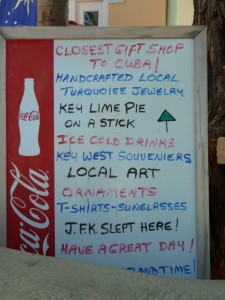 CLOSEST GIFT SHOP
TO CUBA!
HANDCRAFTED LOCAL
TURQUOISE JEWELRY
KEY LIME PIE
ON A STICK
ICE COLD DRINKS
KEY WEST SOUVENIERS
LOCAL ART
ORNAMENTS
T-SHIRTS-SUNGLASSES
J.F.K SLEPT HERE!
HAVE A GREAT DAY!
ISLAND TIME!
Coca-Cola
Coca-Cola